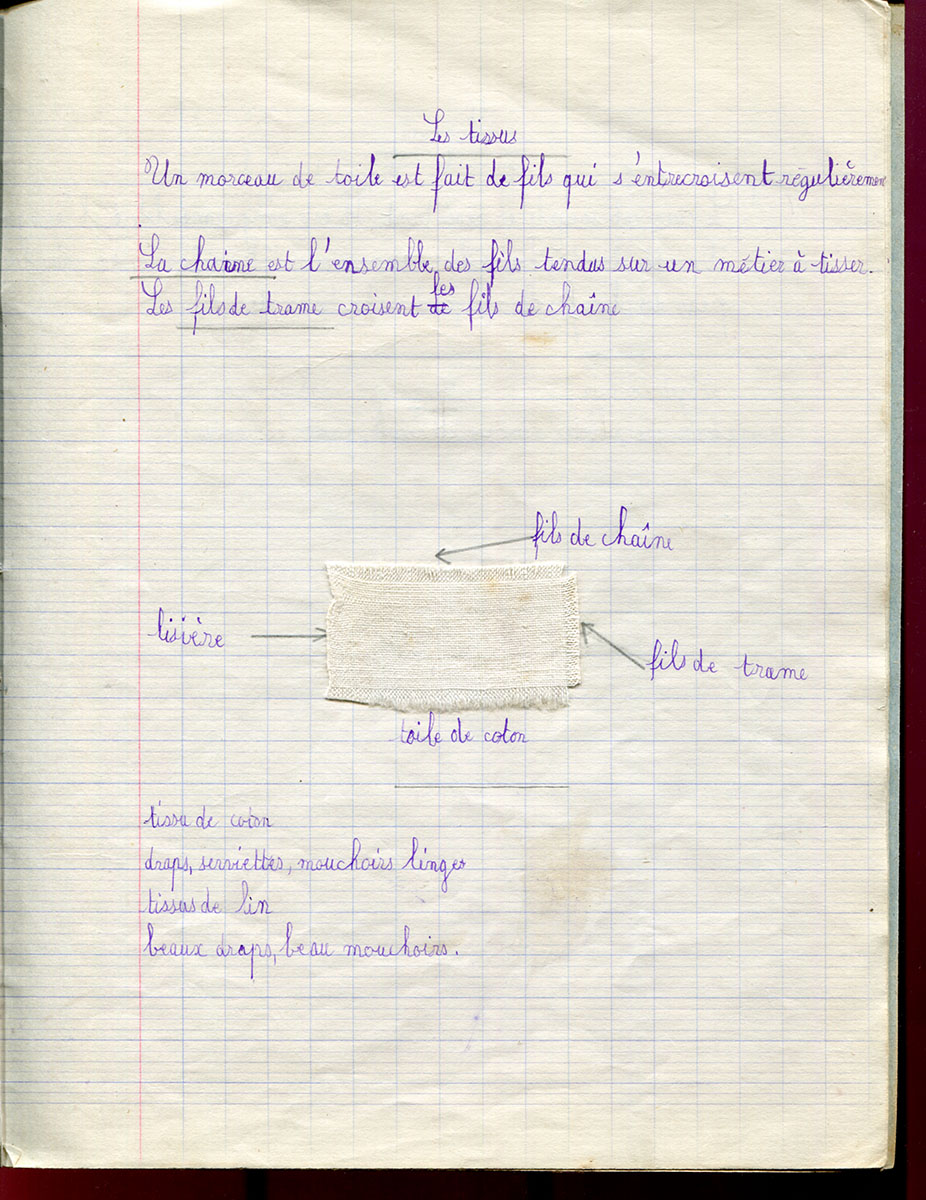 Les tissus
Un morceau de toile est fait de fils qui s'entrecroisent régulièrement
La chaîne est l'ensemble des fils tendus sur un métier à tisser.
les
Les fils de trame croisent de fils de chaîne
fils de chaîne
lisière
fils de trame
toile de coton
tissu de coton
draps, serviettes, mouchoirs linges
tissus de lin
beaux draps, beau mouchoirs.